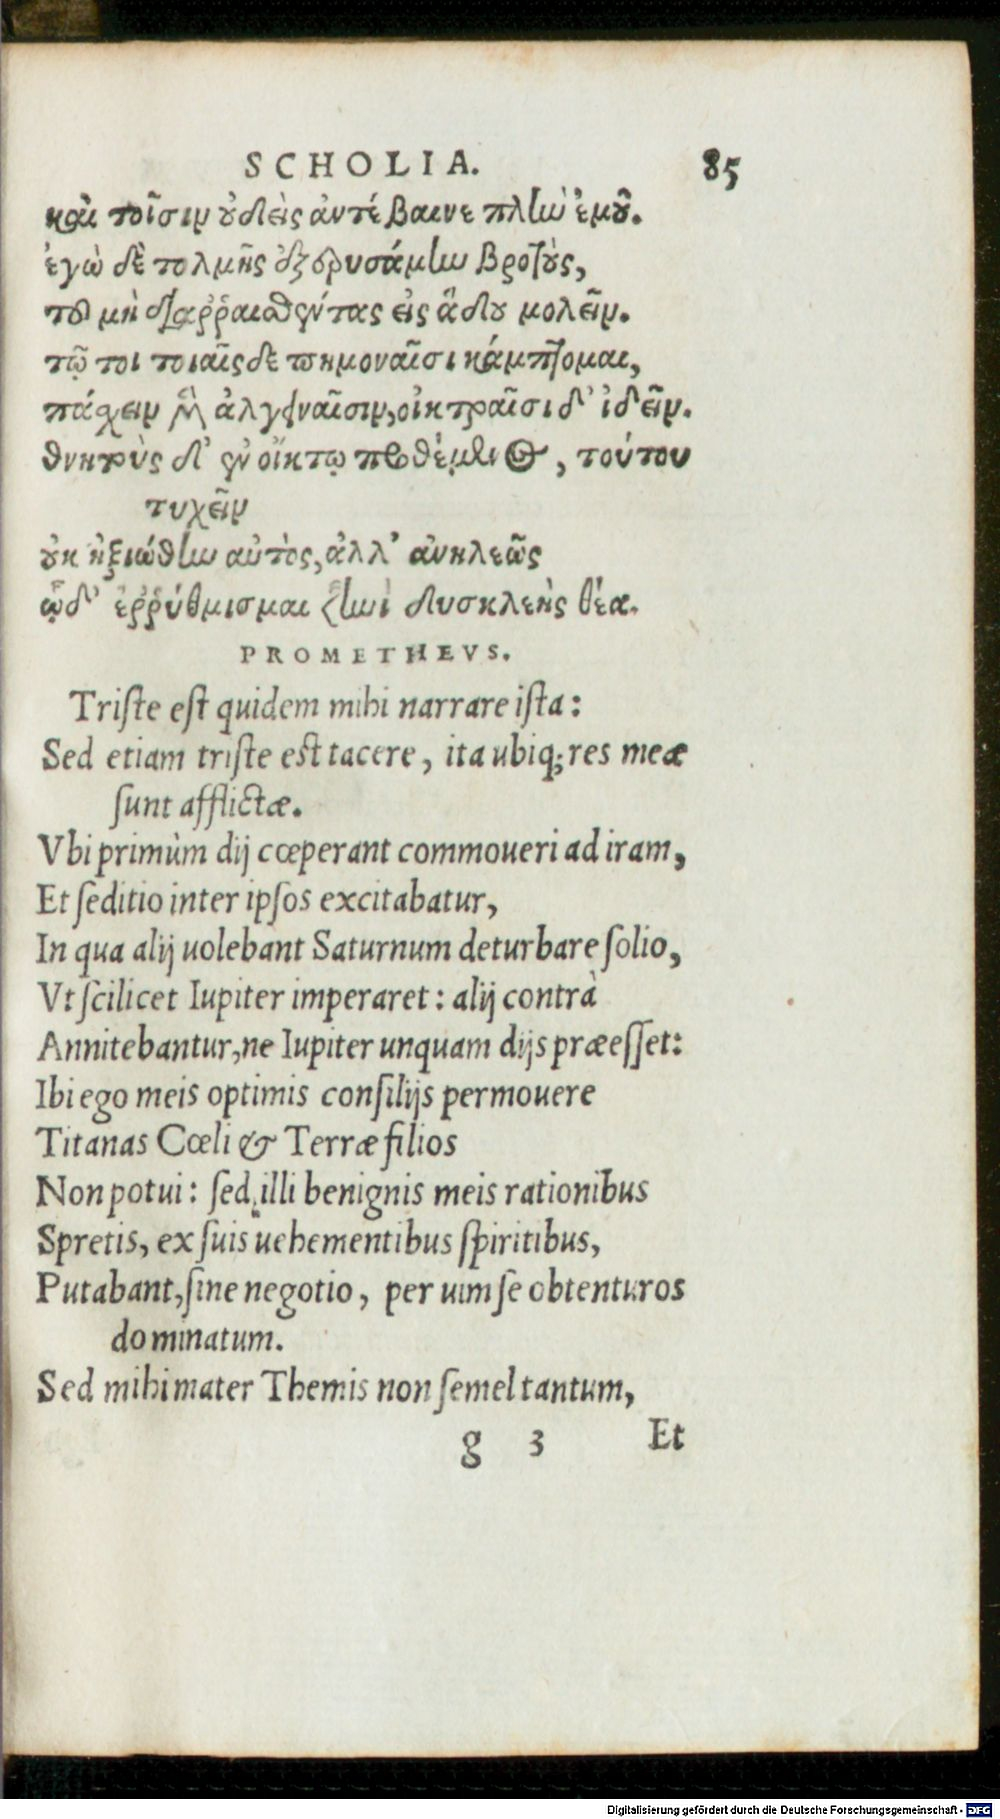 SCHOLIA. 85
καὶ τοῖσιν οὐδεὶς ἀντέβαινε πλὴν ἐμοῦ.
ἐγὼ δὲ τολμῆς ἐξερυσάμην βροτοὺς,
τοῦ μὴ διαρῤῥαισθέντας εἰς ᾅδου μολεῖν.
τῷ τοι τοιαῖςδε πημοναῖσι κάμπτομαι,
πάσχειν μὲν ἀλγειναῖσιν, οἰκτραῖσι δ' ἰδεῖν.
θνητοὺς δ' ἐν οἴκτῳ προθέμενος, τούτου
τυχεῖν
οὐκ ἠξιώθην αὐτὸς, ἀλλ' ἀνηλεῶς
ὧδ' ἐῤῥύθμισμαι ζηνὶ δυσκλεὴς θέα.
PROMETHEVS.
Triste est quidem mihi narrare ista:
Sed etiam triste est tacere, ita ubiq; res meæ
sunt afflictæ.
Vbi primùm dij cœperant commoueri ad iram,
Et seditio inter ipsos excitabatur,
In qua alij uolebant Saturnum deturbare solio,
Vt scilicet Iupiter imperaret: alij contrà
Annitebantur, ne Iupiter unquam dijs præesset:
Ibi ego meis optimis consilijs permouere
Titanas Cœli & Terræ filios
Non potui: sed illi benignis meis rationibus
Spretis, ex suis uehementibus spiritibus,
Putabant, sine negotio, per uim se obtenturos
dominatum.
Sed mihi mater Themis non semel tantum,
g 3 Et
Digitalisierung gefördert durch die Deutsche Forschungsgemeinschaft - DFG